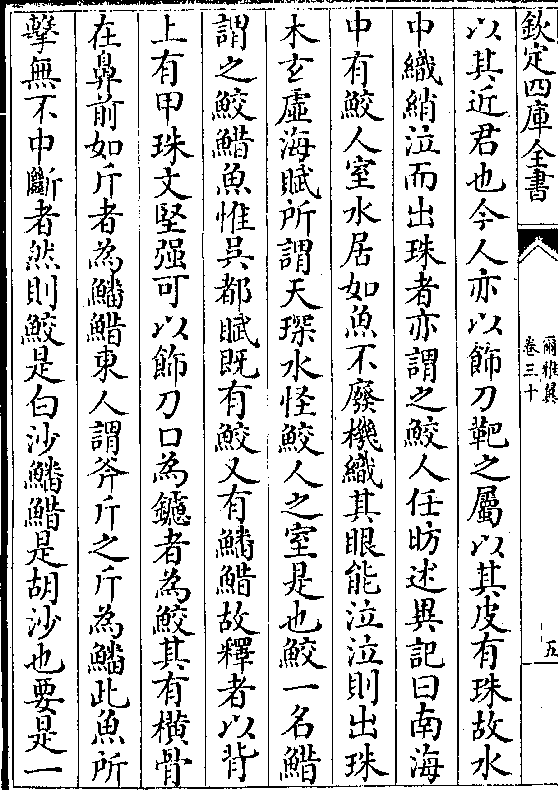 欽定四庫全書
爾雅翼
卷三十
五
以其近君也今人亦以飾刀靶之屬以其皮有珠故水
中織綃泣而出珠者亦謂之鮫人任昉述異記曰南海
中有鮫人室水居如魚不廢機織其眼能泣泣則出珠
木𤣥虛海賦所謂天琛水怪鮫人之室是也鮫一名䱜
謂之鮫䱜魚惟吳都賦既有鮫又有鱕䱜故釋者以背
上有甲珠文堅强可以飾刀口為鑢者為鮫其有横骨
在鼻前如斤者為鱕䱜東人謂斧斤之斤為鱕此魚所
擊無不中斷者然則鮫是白沙鱕䱜是胡沙也要是一